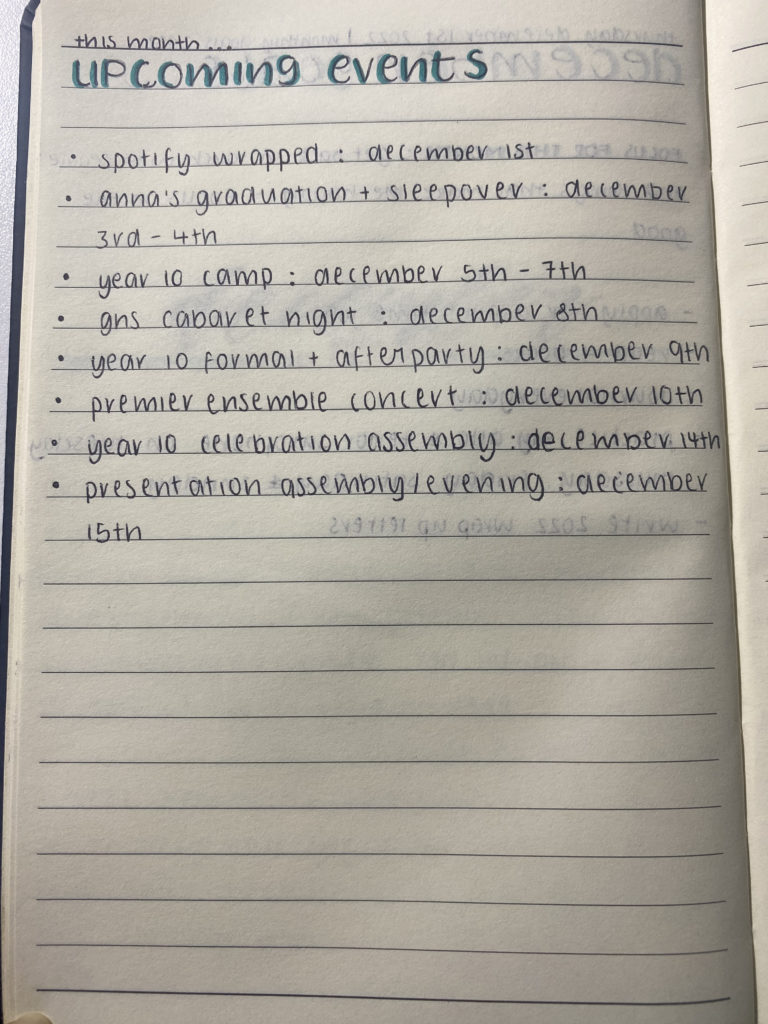 this month...
upcoming events
• spotify wrapped : december 1st
• anna's graduation + sleepover : december
3rd - 4th
• year 10 camp : december 5th - 7th
• ghs cabaret night : december 8th
• year 10 formal + afterparty : december 9th
• premier ensemble concert : december 10th
• year 10 celebration assembly : december 14th
• presentation assembly/evening : december
15th
- write 2022 wrap up letters